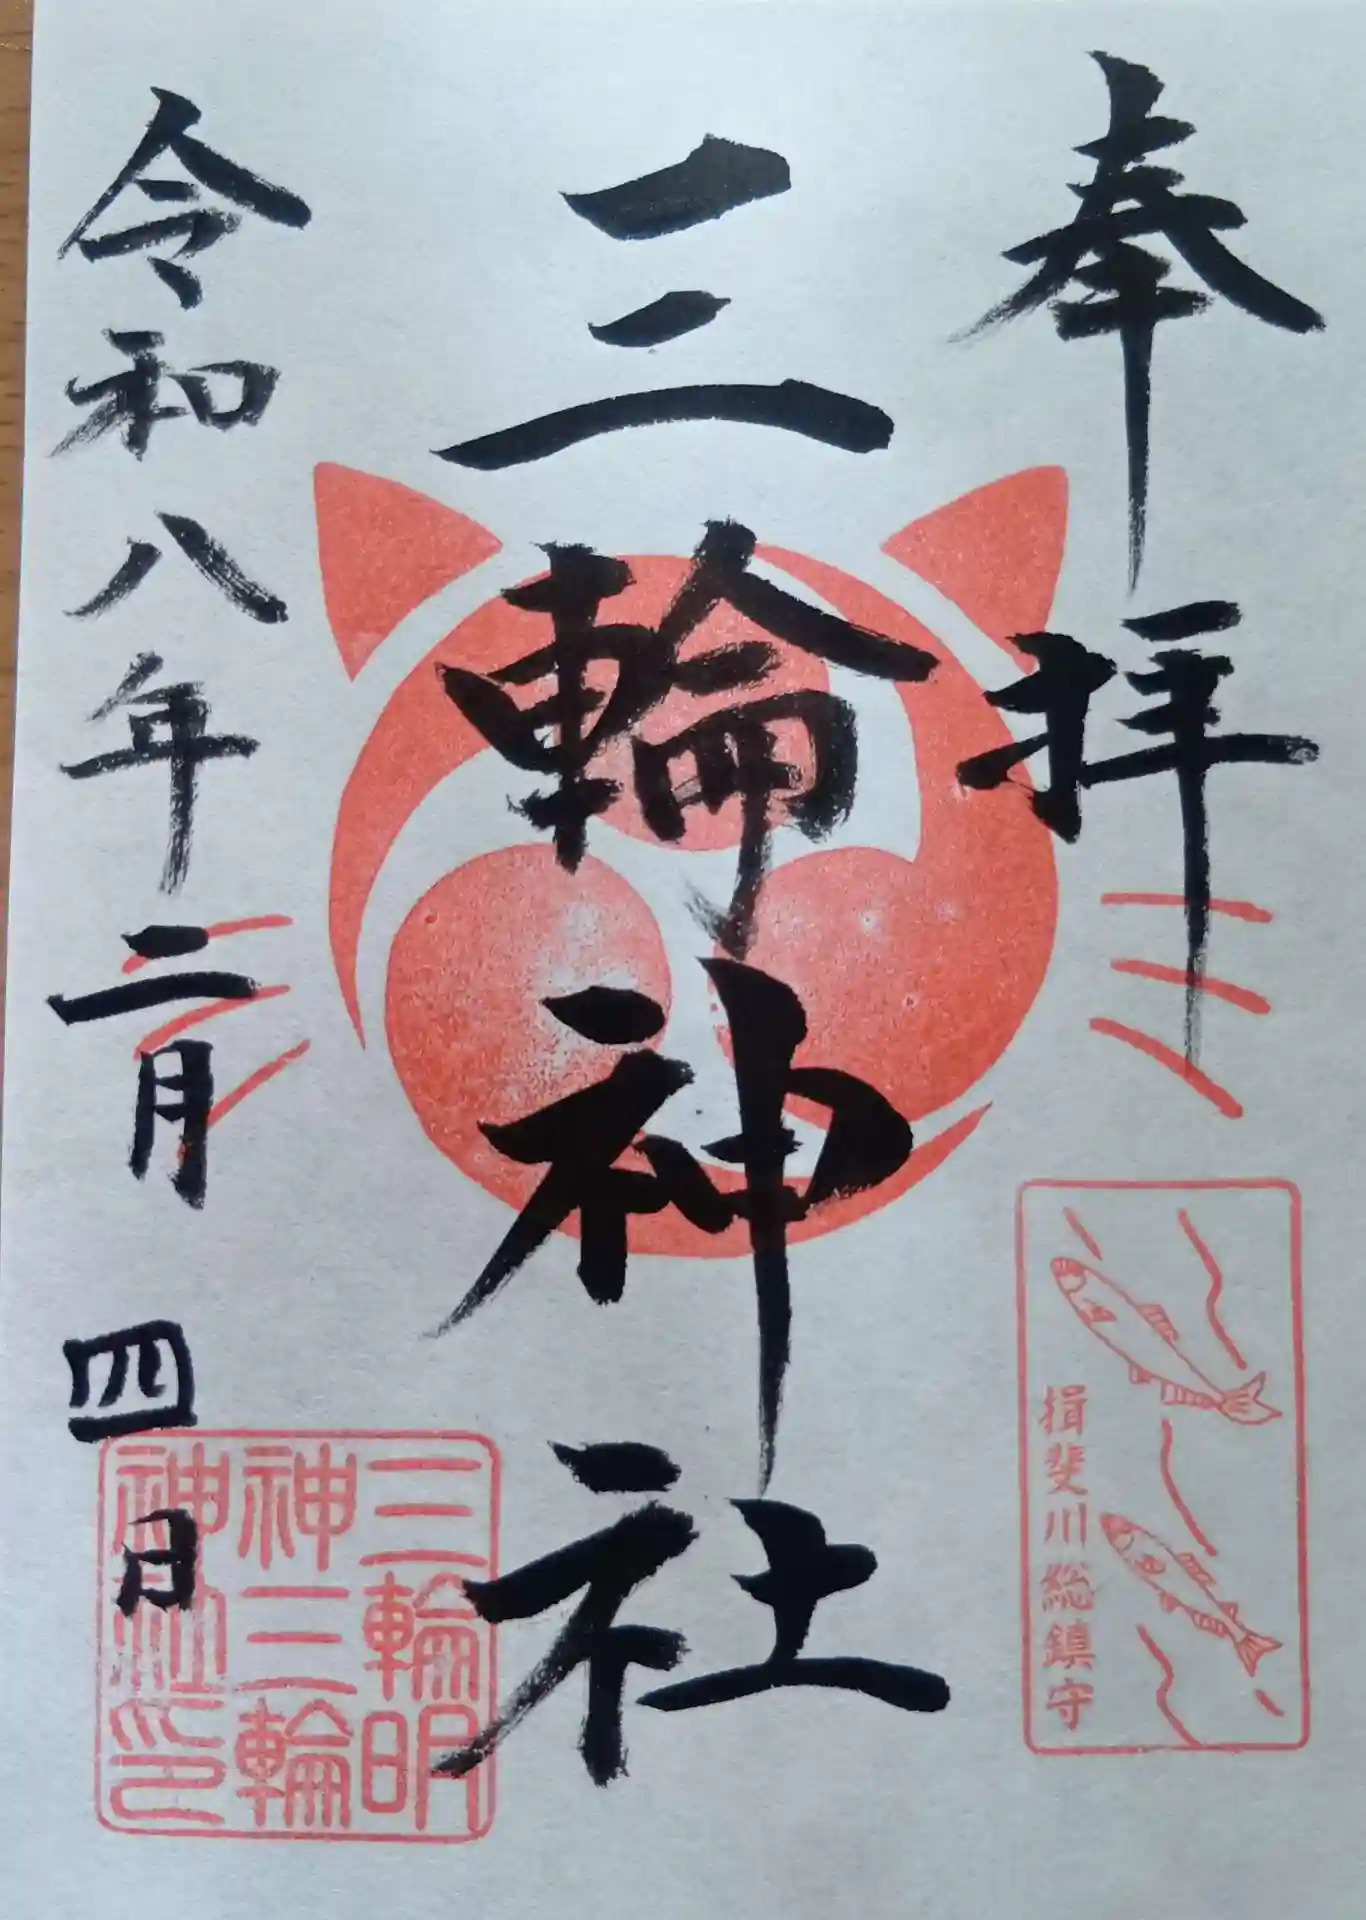 奉拝
揖斐川総鎮守
三輪神社
令和八年二月四日
三輪明
神三輪
神社印